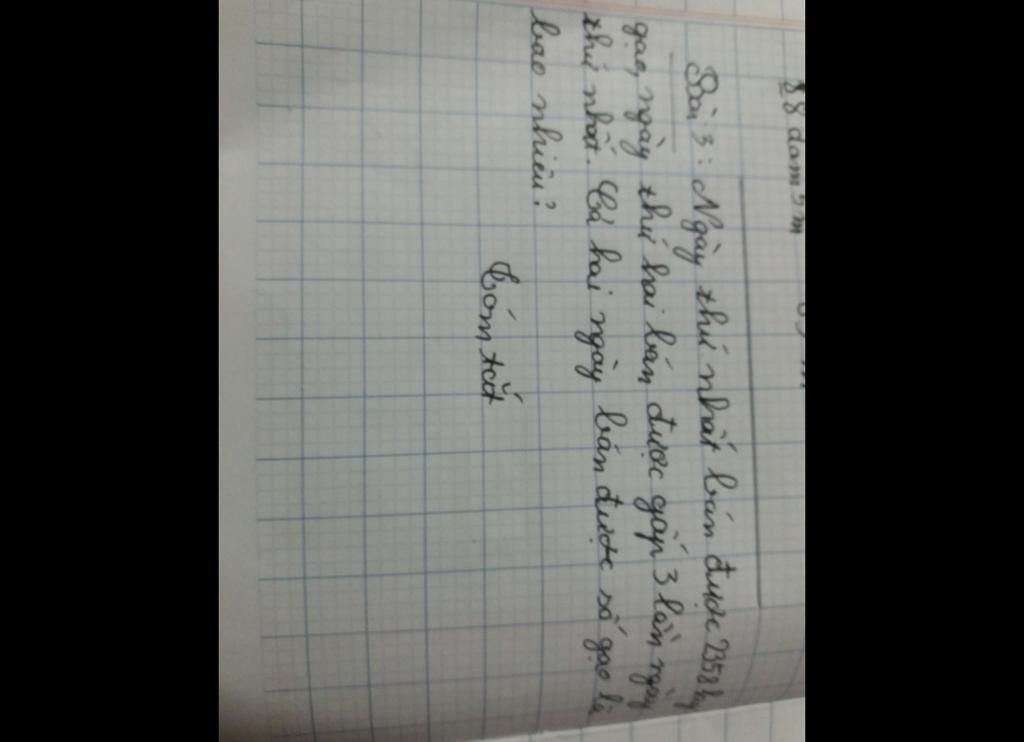 88 dam 5 m
Bài 3: Ngày thứ nhất bán được 2358 kg
gạo, ngày thứ hai bán được gấp 3 lần ngày
thứ nhất. Cả hai ngày bán được số gạo là
bao nhiêu?
Tóm tắt